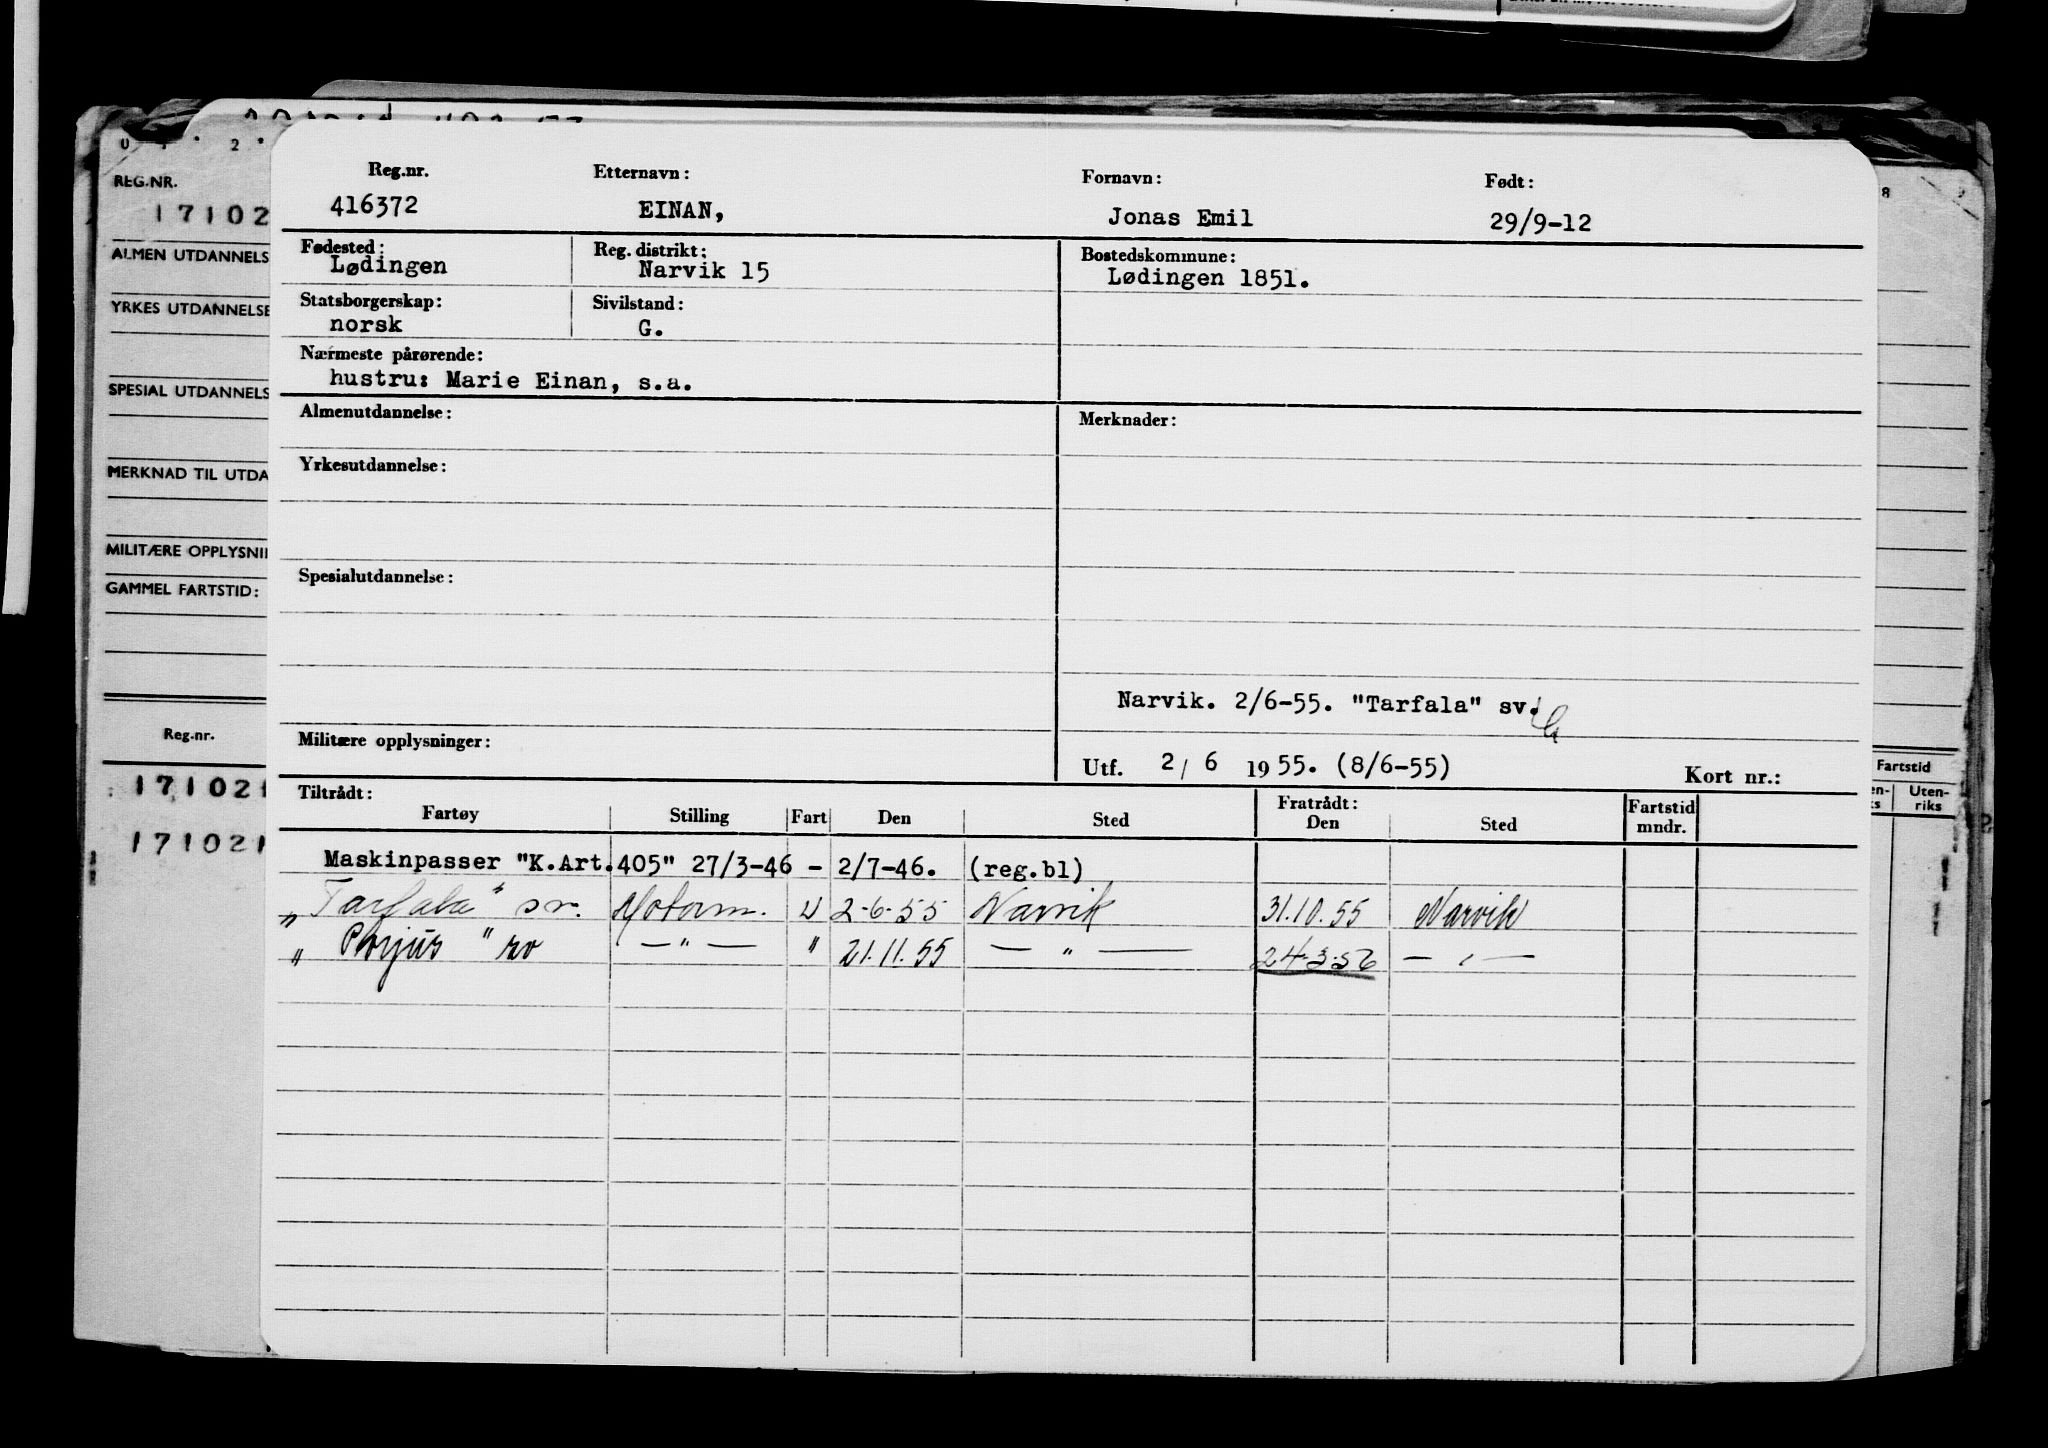 REG.NR.
17102
ALMEN UTDANNELS
YRKES UTDANNELSE
SPESIAL UTDANNELS
MERKNAD TIL UTDA
MILITÆRE OPPLYSNI
GAMMEL FARTSTID:
Reg.nr.
17102
171021
Reg.nr. Etternavn: Fornavn: Født:
416372 EINAN, Jonas Emil 29/9-12
Fødested: Reg. distrikt: Bostedskommune:
Lødingen Narvik 15 Lødingen 1851.
Statsborgerskap: Sivilstand:
norsk G.
Nærmeste pårørende:
hustru: Marie Einan, s.a.
Almenutdannelse: Merknader:
Yrkesutdannelse:
Spesialutdannelse:
Narvik. 2/6-55. "Tarfala" sv.
Militære opplysninger:
Utf. 2/6 1955. (8/6-55) Kort nr.:
Tiltrådt: Fratrådt: Fartstid
Fartøy Stilling Fart Den Sted Den Sted mndr.
Maskinpasser "K.Art.405" 27/3-46 - 2/7-46. (reg.bl)
"Tarfala" sv. Motorm. U 2-6-55 Narvik 31.10.55 Narvik
"Porjus" sv — " — " 21.11.55 — " — 24-3-56 — " —
Fartstid
Uten-
riks